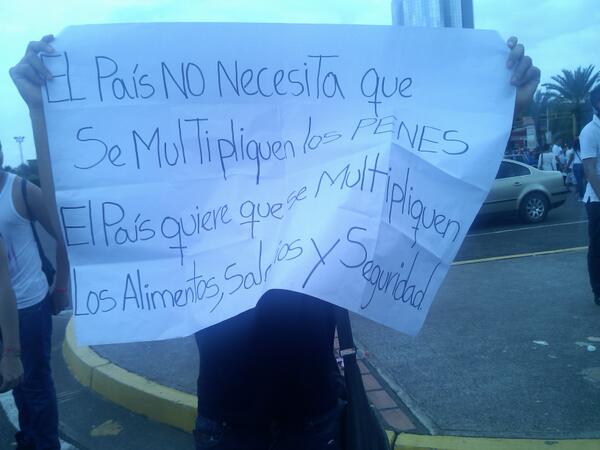 EL País NO Necesita que
Se MulTipliquen los PENES
El País quiere que se Multipliquen
Los Alimentos, Salarios y Seguridad.